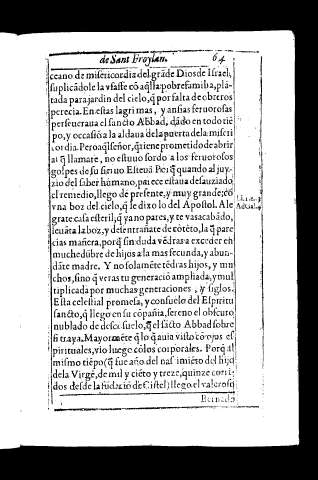 de Sant Froylan. 64
ceano de misericordia del grãde Dios de Israel,
suplicãdole la vsasse cõ aq̃lla pobre familia, plã-
tada para jardin del cielo, q̃ por falta de obreros
perecia. En estas lagrimas, y ansias feruorosas
perseueraua el sancto Abbad, dãdo en todo tiẽ
po, y occasiõ a la aldaua de la puerta de la miseri
cordia. Pero aq̃l señor, q̃ tiene prometido de abrir
al q̃ llamare, no estuuo sordo a los feruorosos
golpes de su sieruo Esteuã Pues quando al juy-
zio del saber humano, parece estaua desauziado
el remedio, llego de presente, y muy grande; co
vna boz del cielo, q̃ le dixo lo del Apostol. Ale
grate casa esteril, q̃ ya no pares, y te vas acabãdo,
leuãta la boz, y desentrañate de cõtẽto, la q̃ pare
cias mañera, porq̃ sin duda vẽdras a exceder en
muchedũbre de hijos a la mas fecunda, y abun-
dãte madre. Y no solamẽte tẽdras hijos, y mu
chos, sino q̃ veras tu generaciõ ampliada, y mul
tiplicada por muchas generaciones, y siglos.
Esta celestial promesa, y consuelo del Espiritu
sancto, q̃ llego en su cõpañia, sereno el obscuro
nublado de desconsuelo, q̃ el sãcto Abbad sobre
si traya. Mayormẽte q̃ lo q̃ auia visto cõ ojos es
pirituales, vio luego cõ los corporales. Porq̃ al
mismo tiẽpo (q̃ fue año del nasimiẽto del hijo
de la Virgẽ, de mil y ciẽto y treze, quinze corri
dos desde la fũdaciõ de Cistel) llego el valeroso
Bernardo